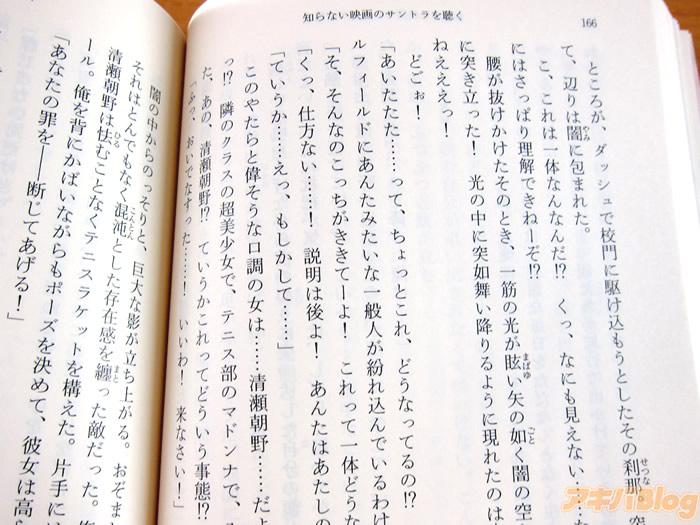 知らない映画のサントラを聴く
166
ところが、ダッシュで校門に駆け込もうとしたその刹那、空
せつな
て、辺りは闇に包まれた。
やみ
こ、これは一体なんなんだ!? くっ、なにも見えない……
にはさっぱり理解できねーぞ!?
腰が抜けかけたそのとき、一筋の光が眩い矢の如く闇の空
まばゆ
ごと
に突き立った! 光の中に突如舞い降りるように現れたのは
ねええぇっ!
どごぉ!
「あいたたた……って、ちょっとこれ、どうなってるの!?
ルフィールドにあんたみたいな一般人が紛れ込んでいるわけ
「そ、そんなのこっちがききてーよ! これって一体どうな
「くっ、仕方ない……! 説明は後よ! あんたはあたしの
「ていうか……えっ、もしかして……」
このやたらと偉そうな口調の女は……清瀬朝野……だよ
っ!? 隣のクラスの超美少女で、テニス部のマドンナで、
た、あの、清瀬朝野!? ていうかこれってどういう事態!?
「ふっ、おいでなすった……! いいわ! 来なさい!」
闇の中からのっそりと、巨大な影が立ち上がる。おぞま
それはとんでもなく混沌とした存在感を纏った敵だった。
こんとん
まと
清瀬朝野は怯むことなくテニスラケットを構えた。片手に
ひる
ール。俺を背にかばいながらもポーズを決めて、彼女は高ら
「あなたの罪を――断じてあげる!」
アキバBlog